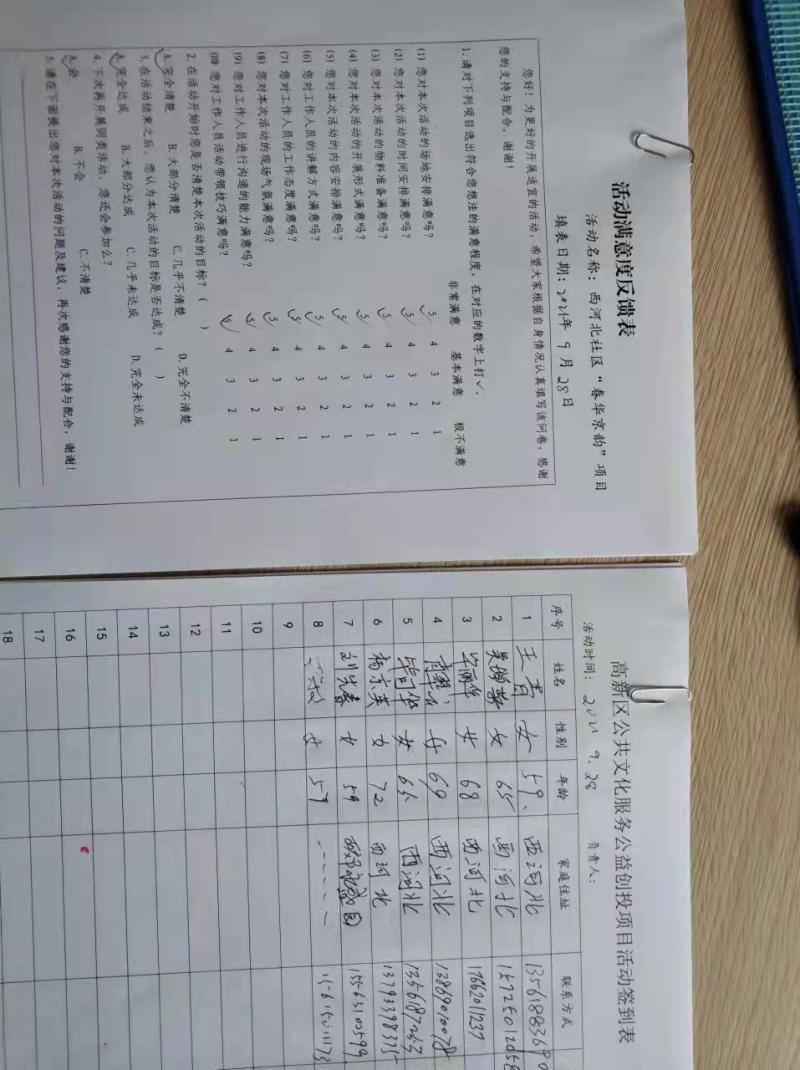 活动满意度反馈表
活动名称：西河北社区“春华京韵”项目
填表日期：2021年 9 月 28 日
您好！为更好的开展适宜的活动，希望大家根据自身情况认真填写该问卷，感谢
您的支持与配合，谢谢！
1. 请对下列项目选出符合您想法的满意程度，在对应的数字上打✓.
非常满意 基本满意 极不满意
(1) 您对本次活动的场地安排满意吗？ 5 4 3 2 1
(2) 您对本次活动的时间安排满意吗？ 5 4 3 2 1
(3) 您对本次活动的物料准备满意吗？ 5 4 3 2 1
(4) 您对本次活动的开展形式满意吗？ 5 4 3 2 1
(5) 您对本次活动的内容安排满意吗？ 5 4 3 2 1
(6) 您对工作人员的讲解方式满意吗？ 5 4 3 2 1
(7) 您对工作人员的工作态度满意吗？ 5 4 3 2 1
(8) 您对本次活动的现场气氛满意吗？ 5 4 3 2 1
(9) 您对工作人员进行沟通的能力满意吗？ 5 4 3 2 1
(10) 您对工作人员活动带领技巧满意吗？ 5 4 3 2 1
2. 在活动开始时您是否清楚本次活动的目标？（ ）
A. 完全清楚 B. 大部分清楚 C. 几乎不清楚 D. 完全不清楚
3. 在活动结束之后，您认为本次活动的目标是否达成？（ ）
A. 完全达成 B. 大部分达成 C. 几乎未达成 D. 完全未达成
4. 下次再开展同类活动，您还会参加么？
A. 会 B. 不会 C. 不清楚
5. 请在下面提出您对本次活动的问题及建议，再次感谢您的支持与配合，谢谢！
高新区公共文化服务公益创投项目活动签到表
活动时间：2021 9.28 负责人：
序号 姓名 性别 年龄 家庭住址 联系方式
1 王青 女 59、 西河北
2 女 65 西河北
3 女 68 西河北 17662011237
4 女 69 西河北
5 毕可华 女 西河北
6 杨京英 女 72 西河北
7 刘先春 女 59
8 女 57
9
10
11
12
13
14
15
16
17
18